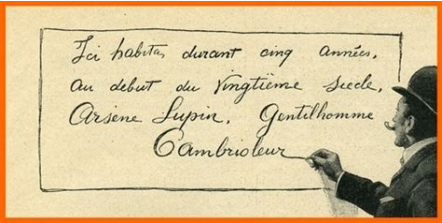 Ici habita, durant cinq années,
au début du vingtième siècle,
Arsène Lupin, Gentilhomme
Cambrioleur